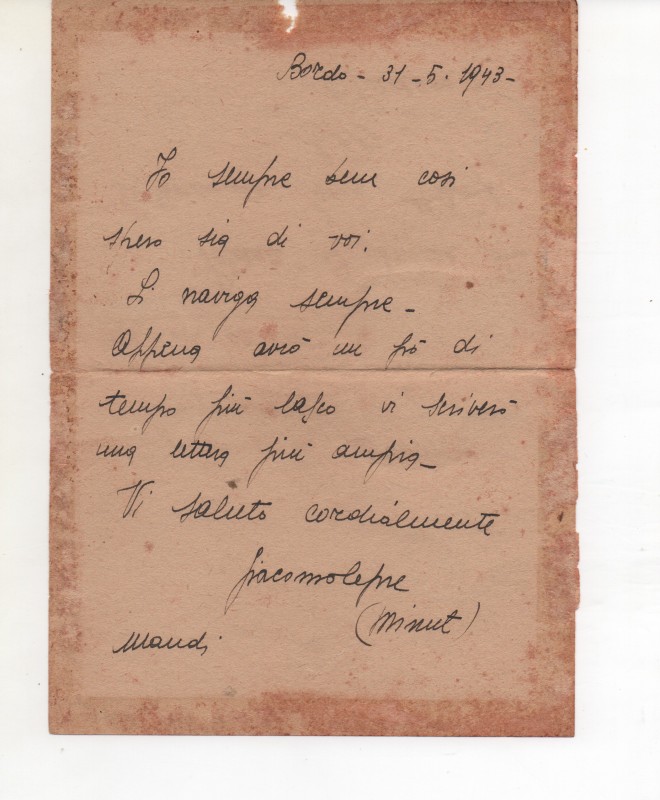 Bordo - 31-5.1943-
Io sempre bene così
spero sia di voi.
Si naviga sempre -
Appena avrò un pò di
tempo più largo vi scriverò
una lettera più ampia -
Vi saluto cordialmente
Giacomo Lepre
(Minut)
Mandi